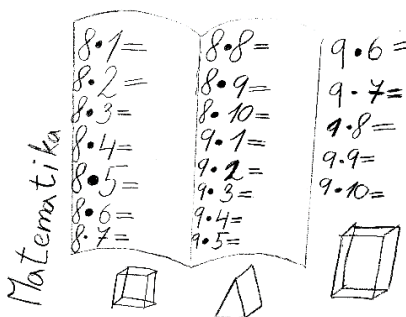 Matematika
8•1=
8•2=
8•3=
8•4=
8•5=
8•6=
8•7=
8•8=
8•9=
8•10=
9•1=
9•2=
9•3=
9•4=
9•5=
9•6=
9•7=
9•8=
9•9=
9•10=